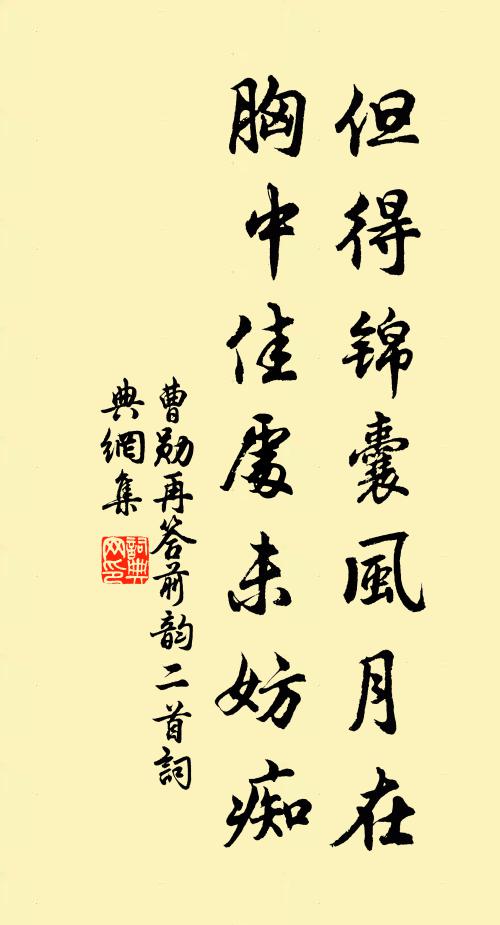 但得锦囊風月在
胸中佳處未妨痴
曹勋再答前韵二首詞
典網集
詞典網印